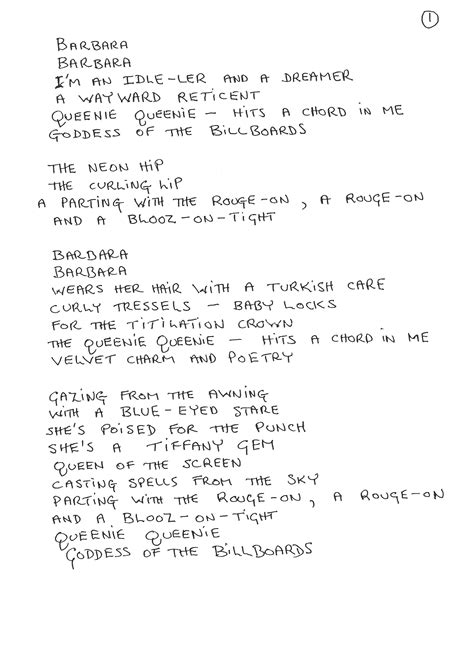 1
BARBARA
BARBARA
I'M AN IDLE-LER AND A DREAMER
A WAYWARD RETICENT
QUEENIE QUEENIE – HITS A CHORD IN ME
GODDESS OF THE BILLBOARDS
THE NEON HIP
THE CURLING LIP
A PARTING WITH THE ROUGE-ON, A ROUGE-ON
AND A BLOOZ-ON-TIGHT
BARBARA
BARBARA
WEARS HER HAIR WITH A TURKISH CARE
CURLY TRESSELS – BABY LOCKS
FOR THE TITILATION CROWN
THE QUEENIE QUEENIE – HITS A CHORD IN ME
VELVET CHARM AND POETRY
GAZING FROM THE AWNING
WITH A BLUE-EYED STARE
SHE'S POISED FOR THE PUNCH
SHE'S A TIFFANY GEM
QUEEN OF THE SCREEN
CASTING SPELLS FROM THE SKY
PARTING WITH THE ROUGE-ON, A ROUGE-ON
AND A BLOOZ-ON-TIGHT
QUEENIE QUEENIE
GODDESS OF THE BILLBOARDS